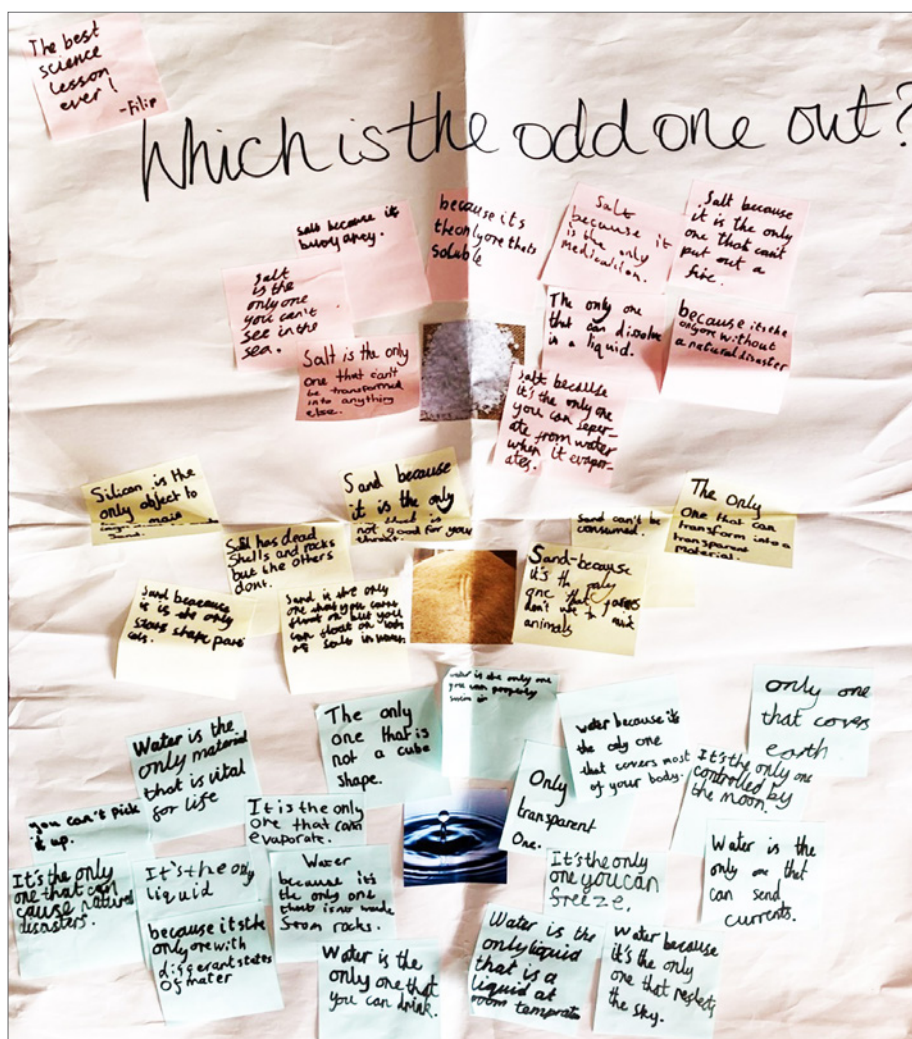 The best
science
lesson
ever!
-Filip
Which is the odd one out?
Salt because its
buoyancy.
because its
the only one thats
soluble
Salt
because it
is the only
medication.
Salt because
it is the only
one that can't
put out a
fire.
Salt
is the
only one
you can't
see in the
sea.
Salt is the only
one that can't
be transformed
into anything
else.
The only one
that can dissolve
in a liquid.
because its the
only one without
a natural disaster
Salt because
it's the only one
you can seper-
ate from water
when it evapor-
ates.
Silicon is the
only object to
Sand because
it is the only
not good for your
throat.
has dead
Shells and rocks
but the others
dont.
Sand can't be
consumed.
The only
One that can
transform into a
transparent
material.
Sand because
is is the only
shape
Sand is the only
one that you cant
float on but you
can float on lots
of salt in water.
Sand-because
it's the only
one that
don't use to
animals
water is the only one
you can properly
swim in
Water is the
only material
that is vital
for life
The only
one that is
not a cube
shape.
water because it's
the only one
that covers most
of your body.
only one
that covers
earth
It's the only one
controlled by
the moon.
Only
transparent
One.
you can't pick
it up.
It is the only
one that can
evaporate.
It's the only
one that can
cause natural
disasters.
It's the only
liquid
Water
because it's
the only one
that is not made
from rocks.
It's the only
one you can
freeze.
Water is the
only one that
can send
currents.
because its the
only one with
diggerant states
Of mater
Water is the
only one that
you can drink.
Water is the
only liquid
that is a
liquid at
room temprate
Water because
it's the only
one that reflects
the sky.